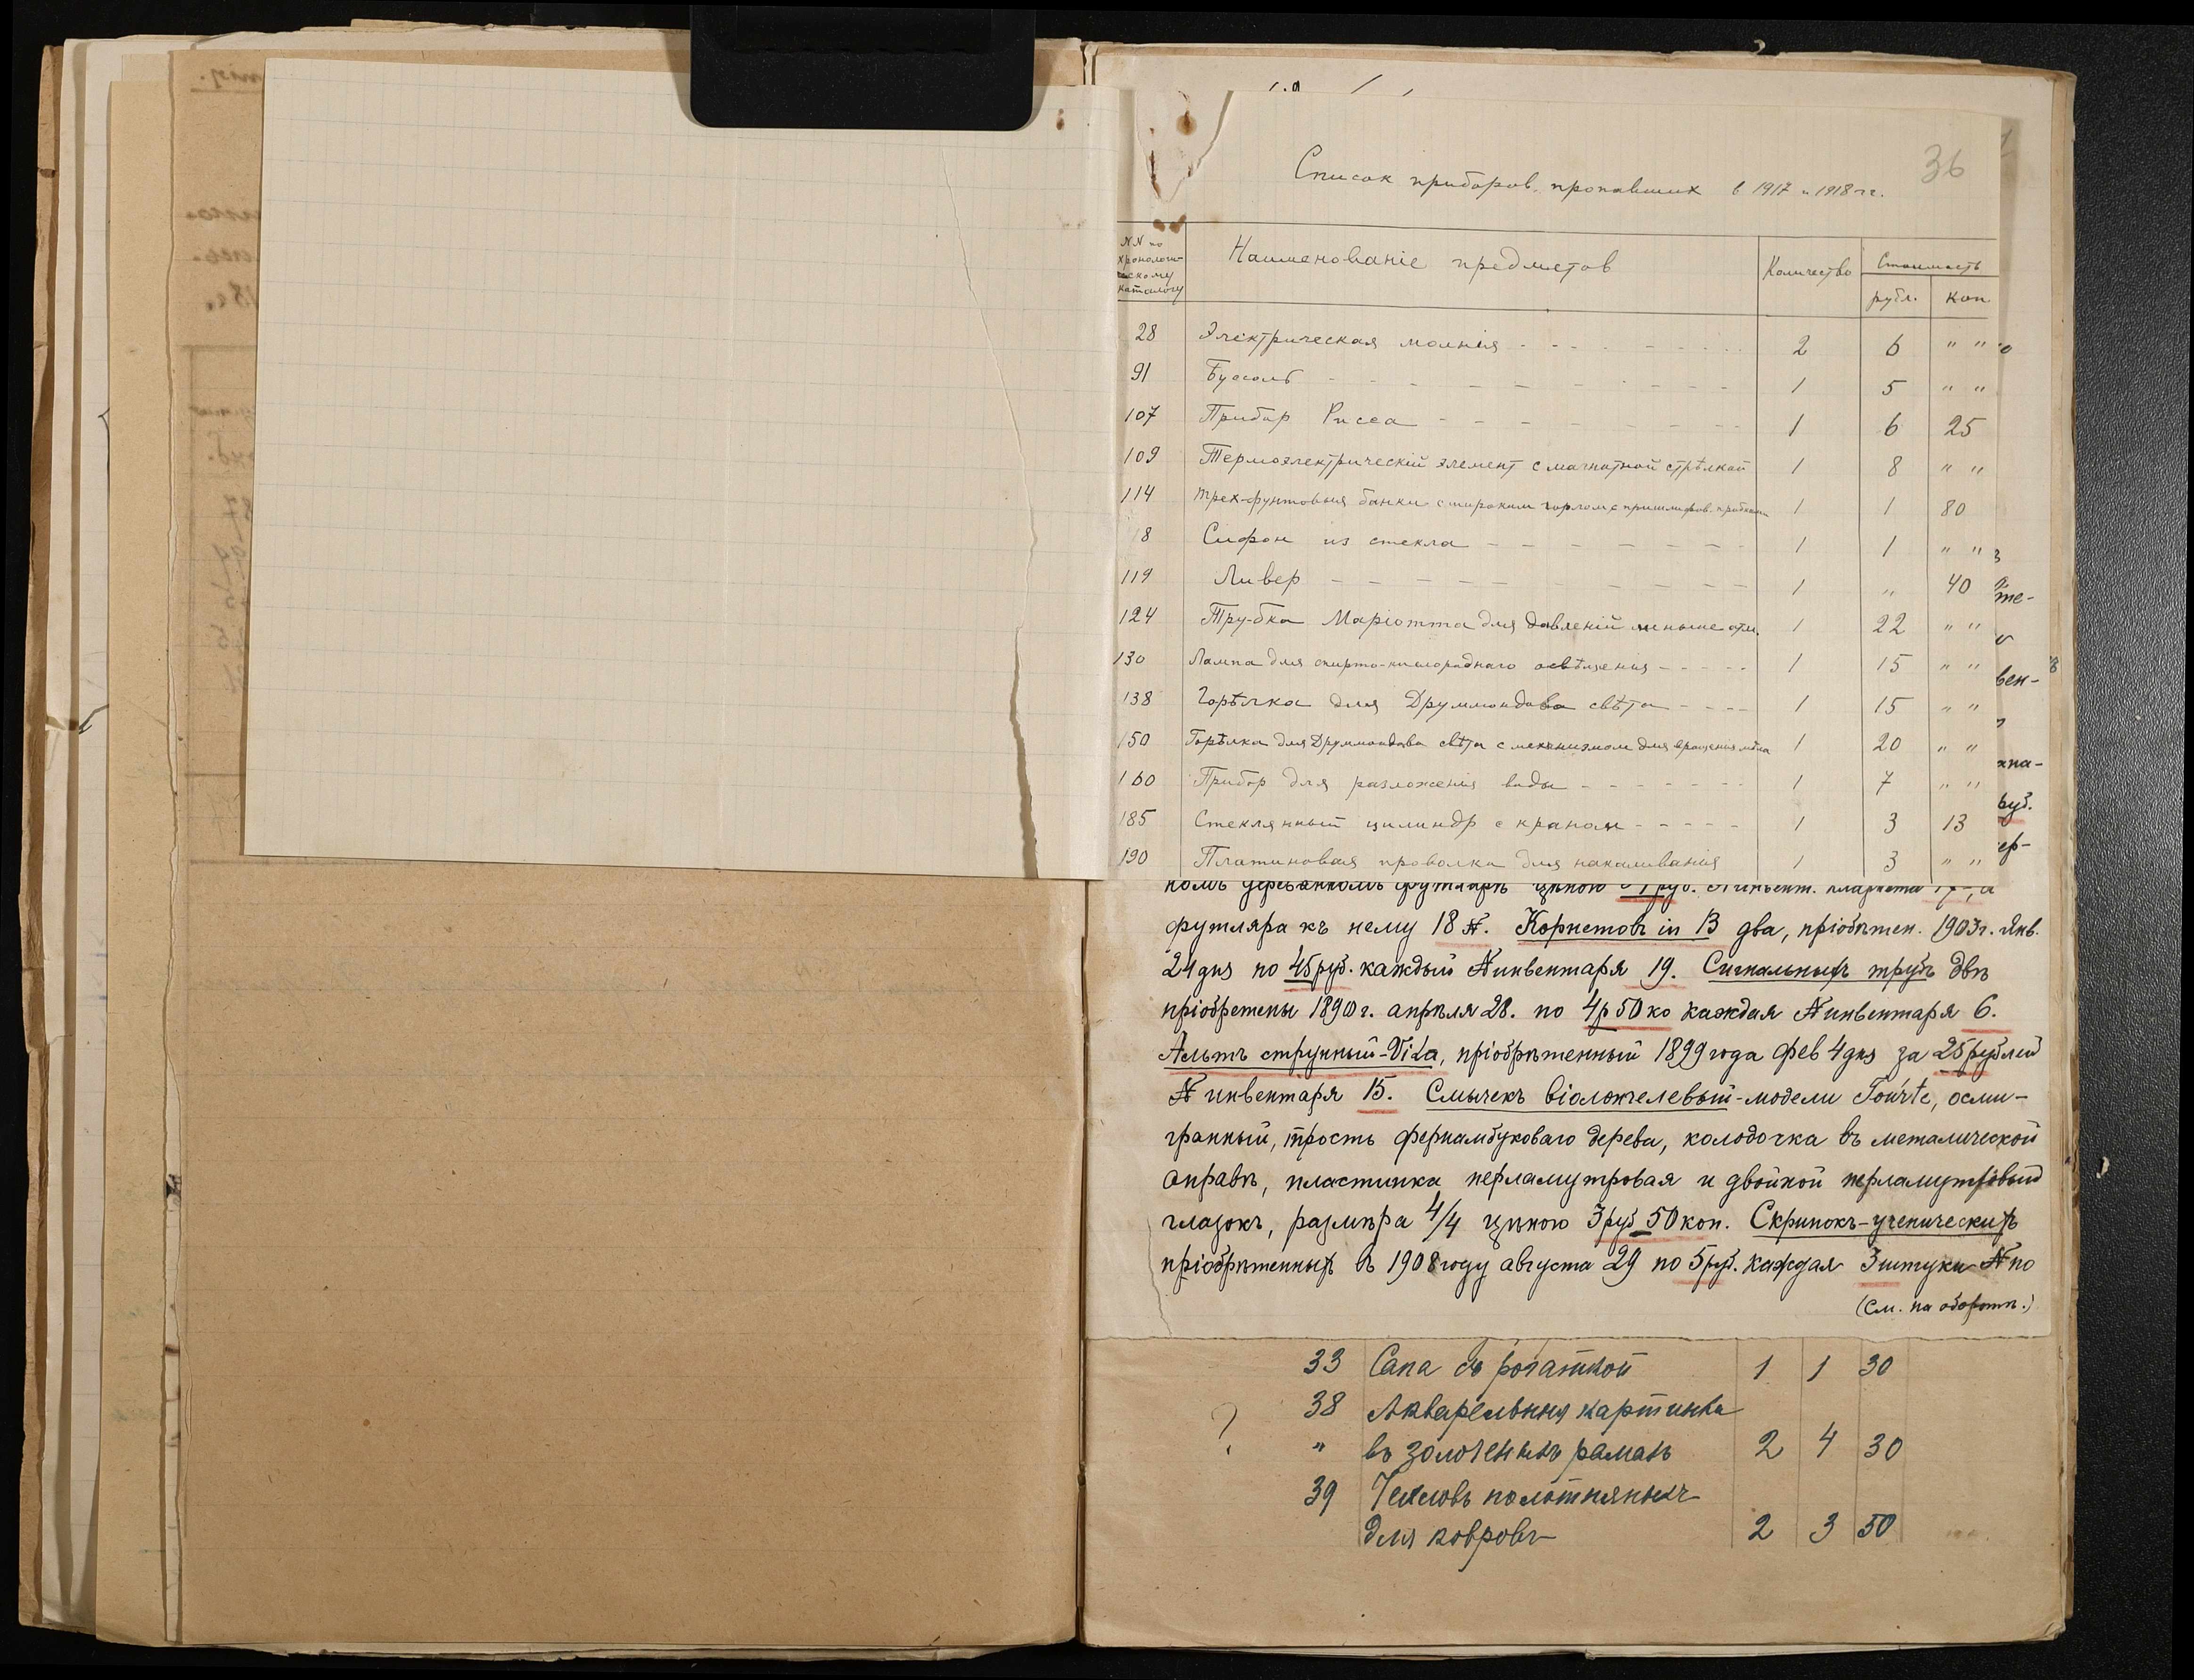 36
Список приборов, пропавших в 1917 и 1918 гг.
NN по хронологическому каталогу Наименованіе предметов Количество Стоимость
рубл. коп
28 Электрическая молнія 2 6 " "
91 Буссоль 1 5 " "
107 Прибор Рисса 1 6 25
109 Термоэлектрическій элемент с магнитной стрѣлкой 1 8 " "
114 Трех-фунтовыя банки с широким горлом с пришлифов. пробками 1 1 80
18 Сифон из стекла 1 1 " "
119 Ливер 1 " 40
124 Трубка Маріотта для давленій меньше атм. 1 22 " "
130 Лампа для спирто-кислороднаго освѣщенія 1 15 " "
138 Горѣлка для Друммондова свѣта 1 15 " "
150 Горѣлка для Друммондова свѣта с механизмом для вращенія мѣла 1 20 " "
160 Прибор для разложенія воды 1 7 " "
185 Стеклянный цилиндр с краном 1 3 13
190 Платиновая проволка для накаливанія 1 3 " "
футляра къ нему 18 №. Корнетовъ in B два, пріобрѣтен. 1903г. Янв.
24 дня по 45 руб. каждый № инвентаря 19. Сигнальныхъ трубъ двѣ
пріобретены 1890 г. апрѣля 28. по 4р 50 ко каждая № инвентаря 6.
Альтъ струнный-Viola, пріобрѣтенный 1899 года фев 4 дня за 25 рублей
№ инвентаря 15. Смычекъ віолончелевый-модели Tourte, осми-
гранный, трость фернамбуковаго дерева, колодочка въ металической
оправѣ, пластинка перламутровая и двойной перламутровый
глазокъ, размѣра 4/4 цѣною 3 руб 50 коп. Скрипокъ-ученическихъ
пріобрѣтенныхъ въ 1908 году августа 29 по 5 руб. каждая 3 штуки № по
(См. на оборотѣ.)
33 Сапа съ рогаткой 1 1 30
38 Акварельныя картинки
? " въ золоченыхъ рамахъ 2 4 30
39 Чехловъ полотняныхъ
для ковровъ 2 3 50